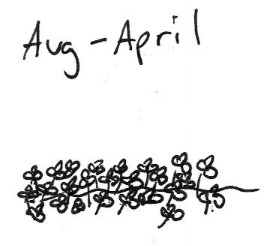 Aug - April